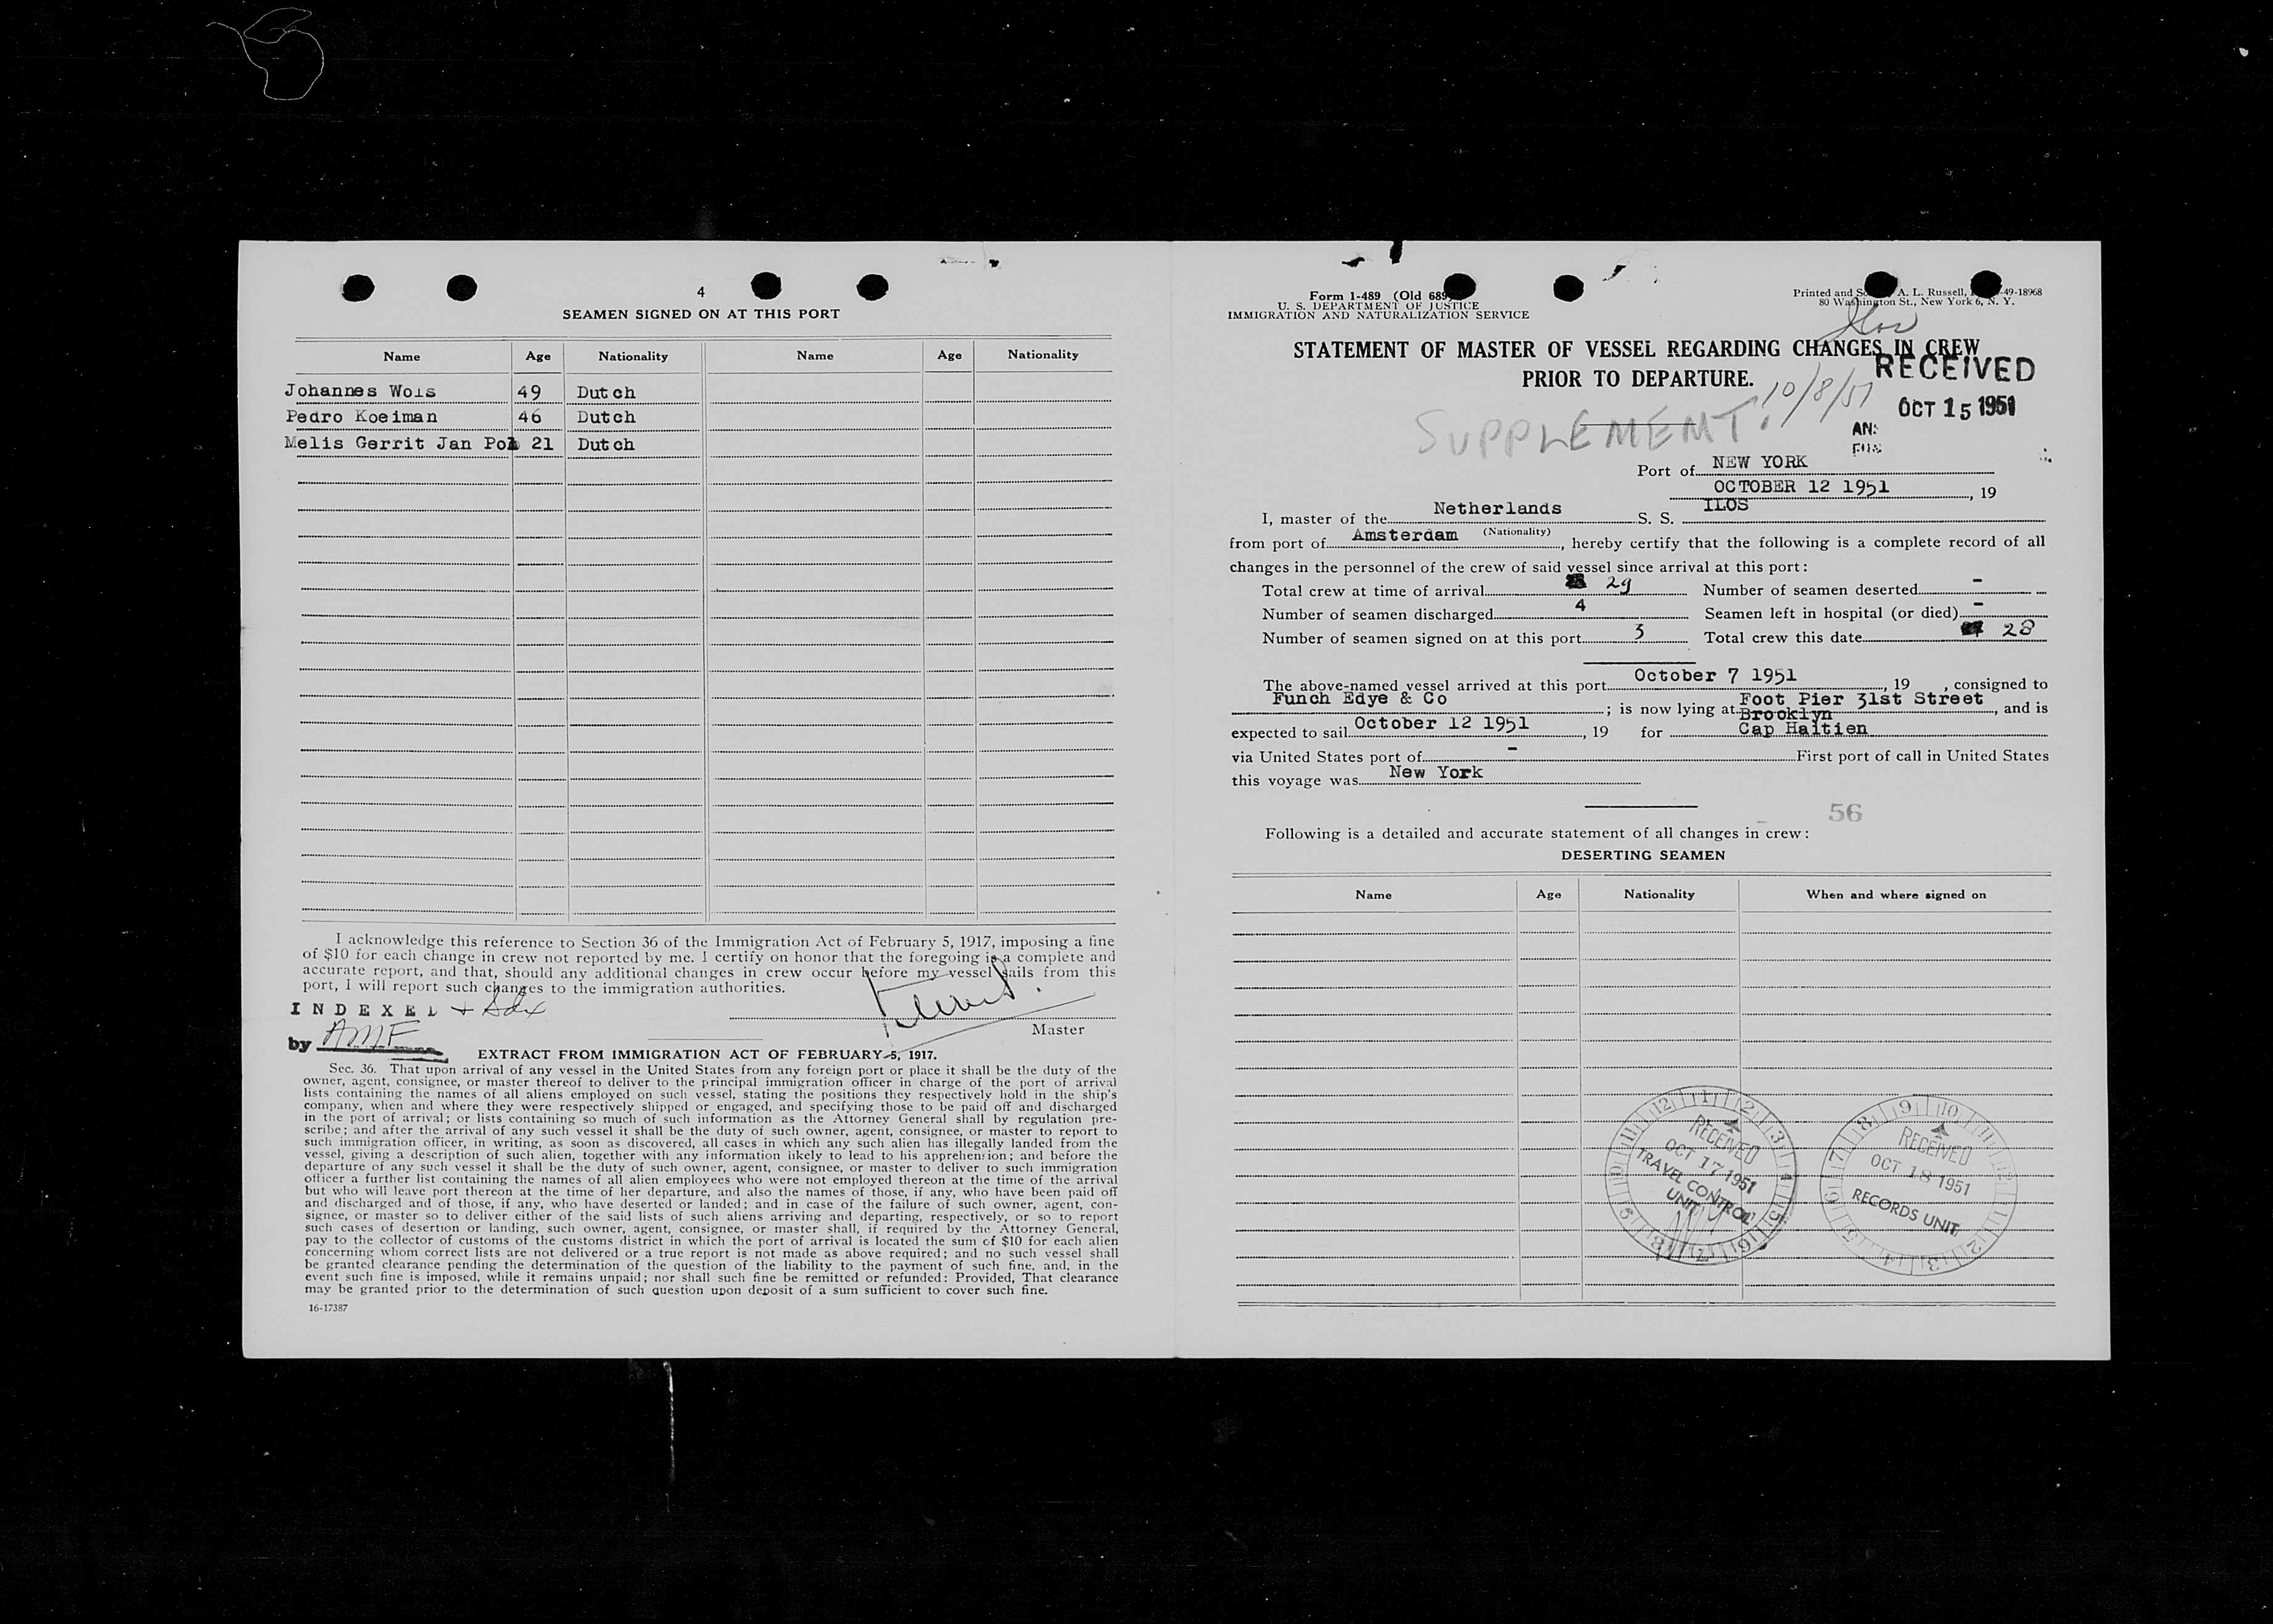 4
SEAMEN SIGNED ON AT THIS PORT
Name Age Nationality Name Age Nationality
Johannes Wois 49 Dutch
Pedro Koeiman 46 Dutch
Melis Gerrit Jan Pol 21 Dutch
I acknowledge this reference to Section 36 of the Immigration Act of February 5, 1917, imposing a fine
of $10 for each change in crew not reported by me. I certify on honor that the foregoing is a complete and
accurate report, and that, should any additional changes in crew occur before my vessel sails from this
port, I will report such changes to the immigration authorities.
INDEXED
Master
by AMF
EXTRACT FROM IMMIGRATION ACT OF FEBRUARY 5, 1917.
Sec. 36. That upon arrival of any vessel in the United States from any foreign port or place it shall be the duty of the
owner, agent, consignee, or master thereof to deliver to the principal immigration officer in charge of the port of arrival
lists containing the names of all aliens employed on such vessel, stating the positions they respectively hold in the ship's
company, when and where they were respectively shipped or engaged, and specifying those to be paid off and discharged
in the port of arrival; or lists containing so much of such information as the Attorney General shall by regulation pre-
scribe; and after the arrival of any such vessel it shall be the duty of such owner, agent, consignee, or master to report to
such immigration officer, in writing, as soon as discovered, all cases in which any such alien has illegally landed from the
vessel, giving a description of such alien, together with any information likely to lead to his apprehension; and before the
departure of any such vessel it shall be the duty of such owner, agent, consignee, or master to deliver to such immigration
officer a further list containing the names of all alien employees who were not employed thereon at the time of the arrival
but who will leave port thereon at the time of her departure, and also the names of those, if any, who have been paid off
and discharged and of those, if any, who have deserted or landed; and in case of the failure of such owner, agent, con-
signee, or master so to deliver either of the said lists of such aliens arriving and departing, respectively, or so to report
such cases of desertion or landing, such owner, agent, consignee, or master shall, if required by the Attorney General,
pay to the collector of customs of the customs district in which the port of arrival is located the sum of $10 for each alien
concerning whom correct lists are not delivered or a true report is not made as above required; and no such vessel shall
be granted clearance pending the determination of the question of the liability to the payment of such fine, and, in the
event such fine is imposed, while it remains unpaid; nor shall such fine be remitted or refunded: Provided, That clearance
may be granted prior to the determination of such question upon deposit of a sum sufficient to cover such fine.
16-17387
Form 1-489 (Old 689)
U. S. DEPARTMENT OF JUSTICE
IMMIGRATION AND NATURALIZATION SERVICE
Printed and A. L. Russell, 49-18968
80 Washington St., New York 6, N. Y.
Ilos
STATEMENT OF MASTER OF VESSEL REGARDING CHANGES IN CREW
PRIOR TO DEPARTURE.
RECEIVED
OCT 15 1951
10/8/51
SUPPLEMENT.
Port of NEW YORK
OCTOBER 12 1951, 19
I, master of the Netherlands S. S. ILOS
(Nationality)
from port of Amsterdam, hereby certify that the following is a complete record of all
changes in the personnel of the crew of said vessel since arrival at this port:
Total crew at time of arrival 29 Number of seamen deserted -
Number of seamen discharged 4 Seamen left in hospital (or died) -
Number of seamen signed on at this port 3 Total crew this date 28
The above-named vessel arrived at this port October 7 1951, 19 , consigned to
Funch Edye & Co ; is now lying at Foot Pier 31st Street Brooklyn, and is
expected to sail October 12 1951, 19 for Cap Haitien
via United States port of - First port of call in United States
this voyage was New York
56
Following is a detailed and accurate statement of all changes in crew:
DESERTING SEAMEN
Name Age Nationality When and where signed on
RECEIVED
OCT 17 1951
TRAVEL CONTROL
UNIT
RECEIVED
OCT 18 1951
RECORDS UNIT